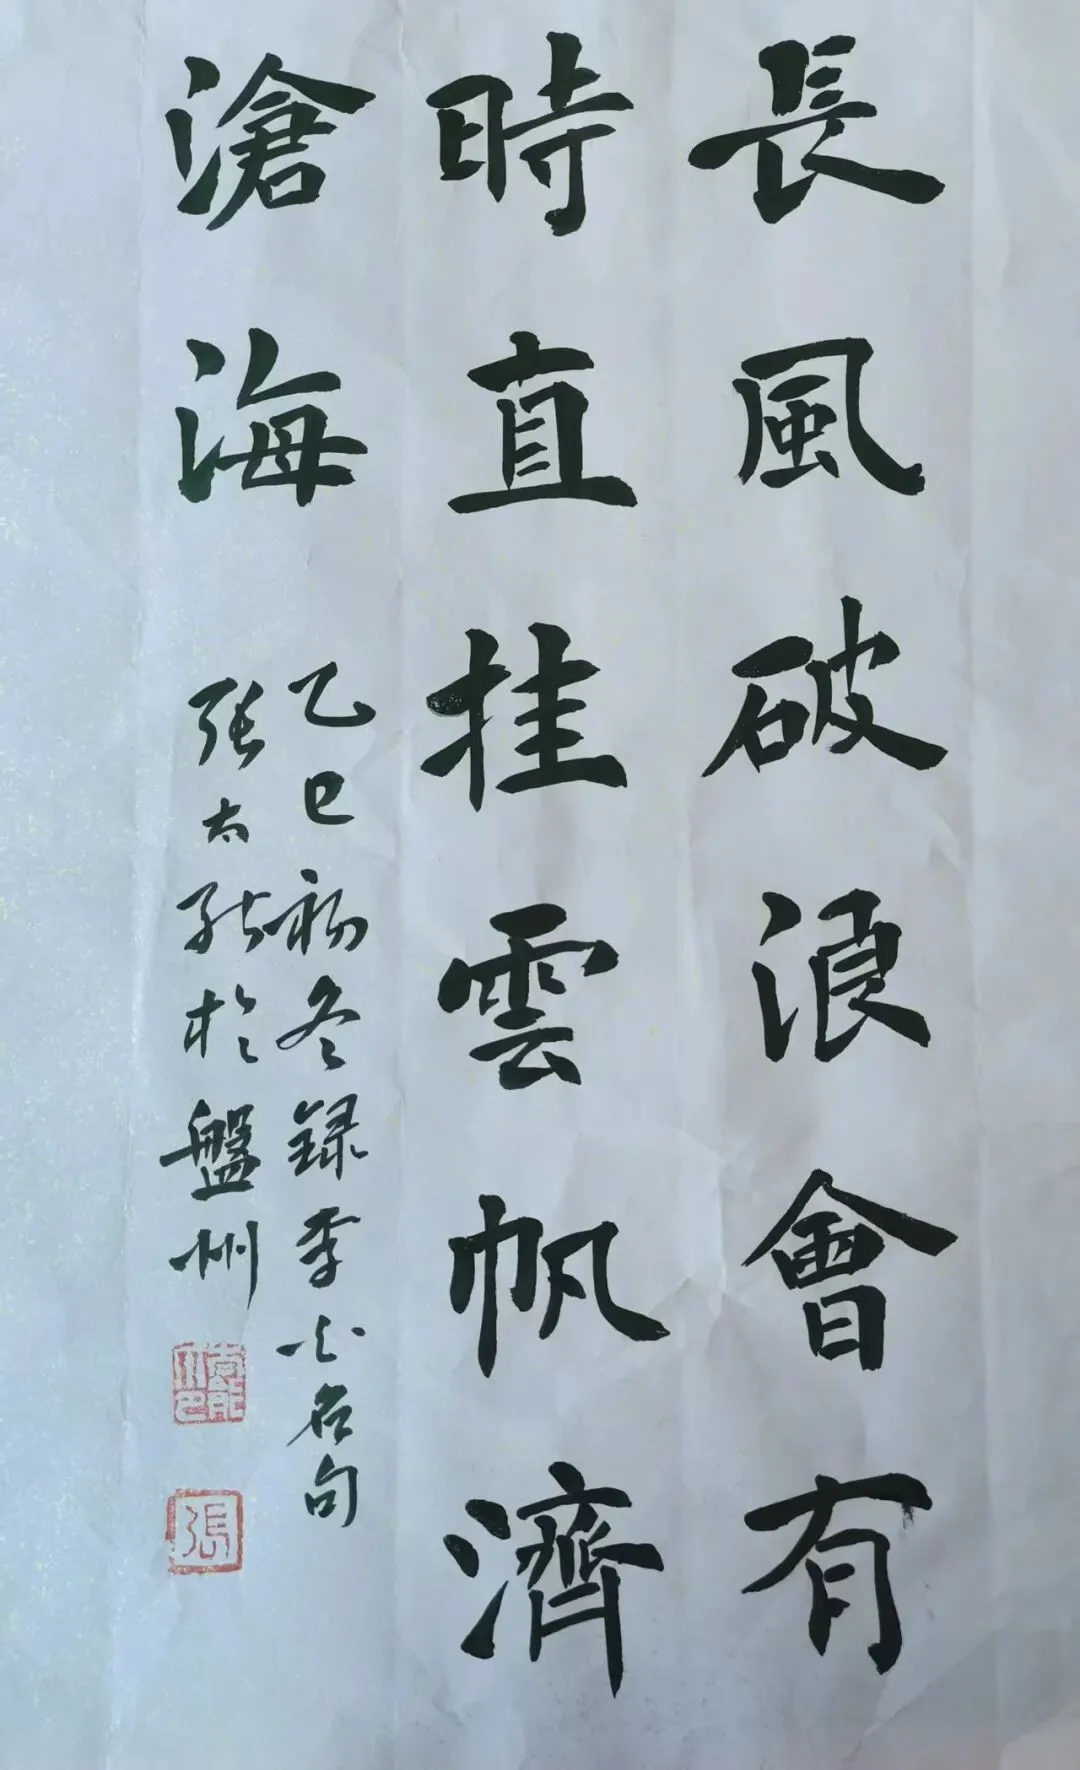 長風破浪會有
時直挂雲帆濟
滄海
乙巳初冬録李白名句
张太能於盤州
張